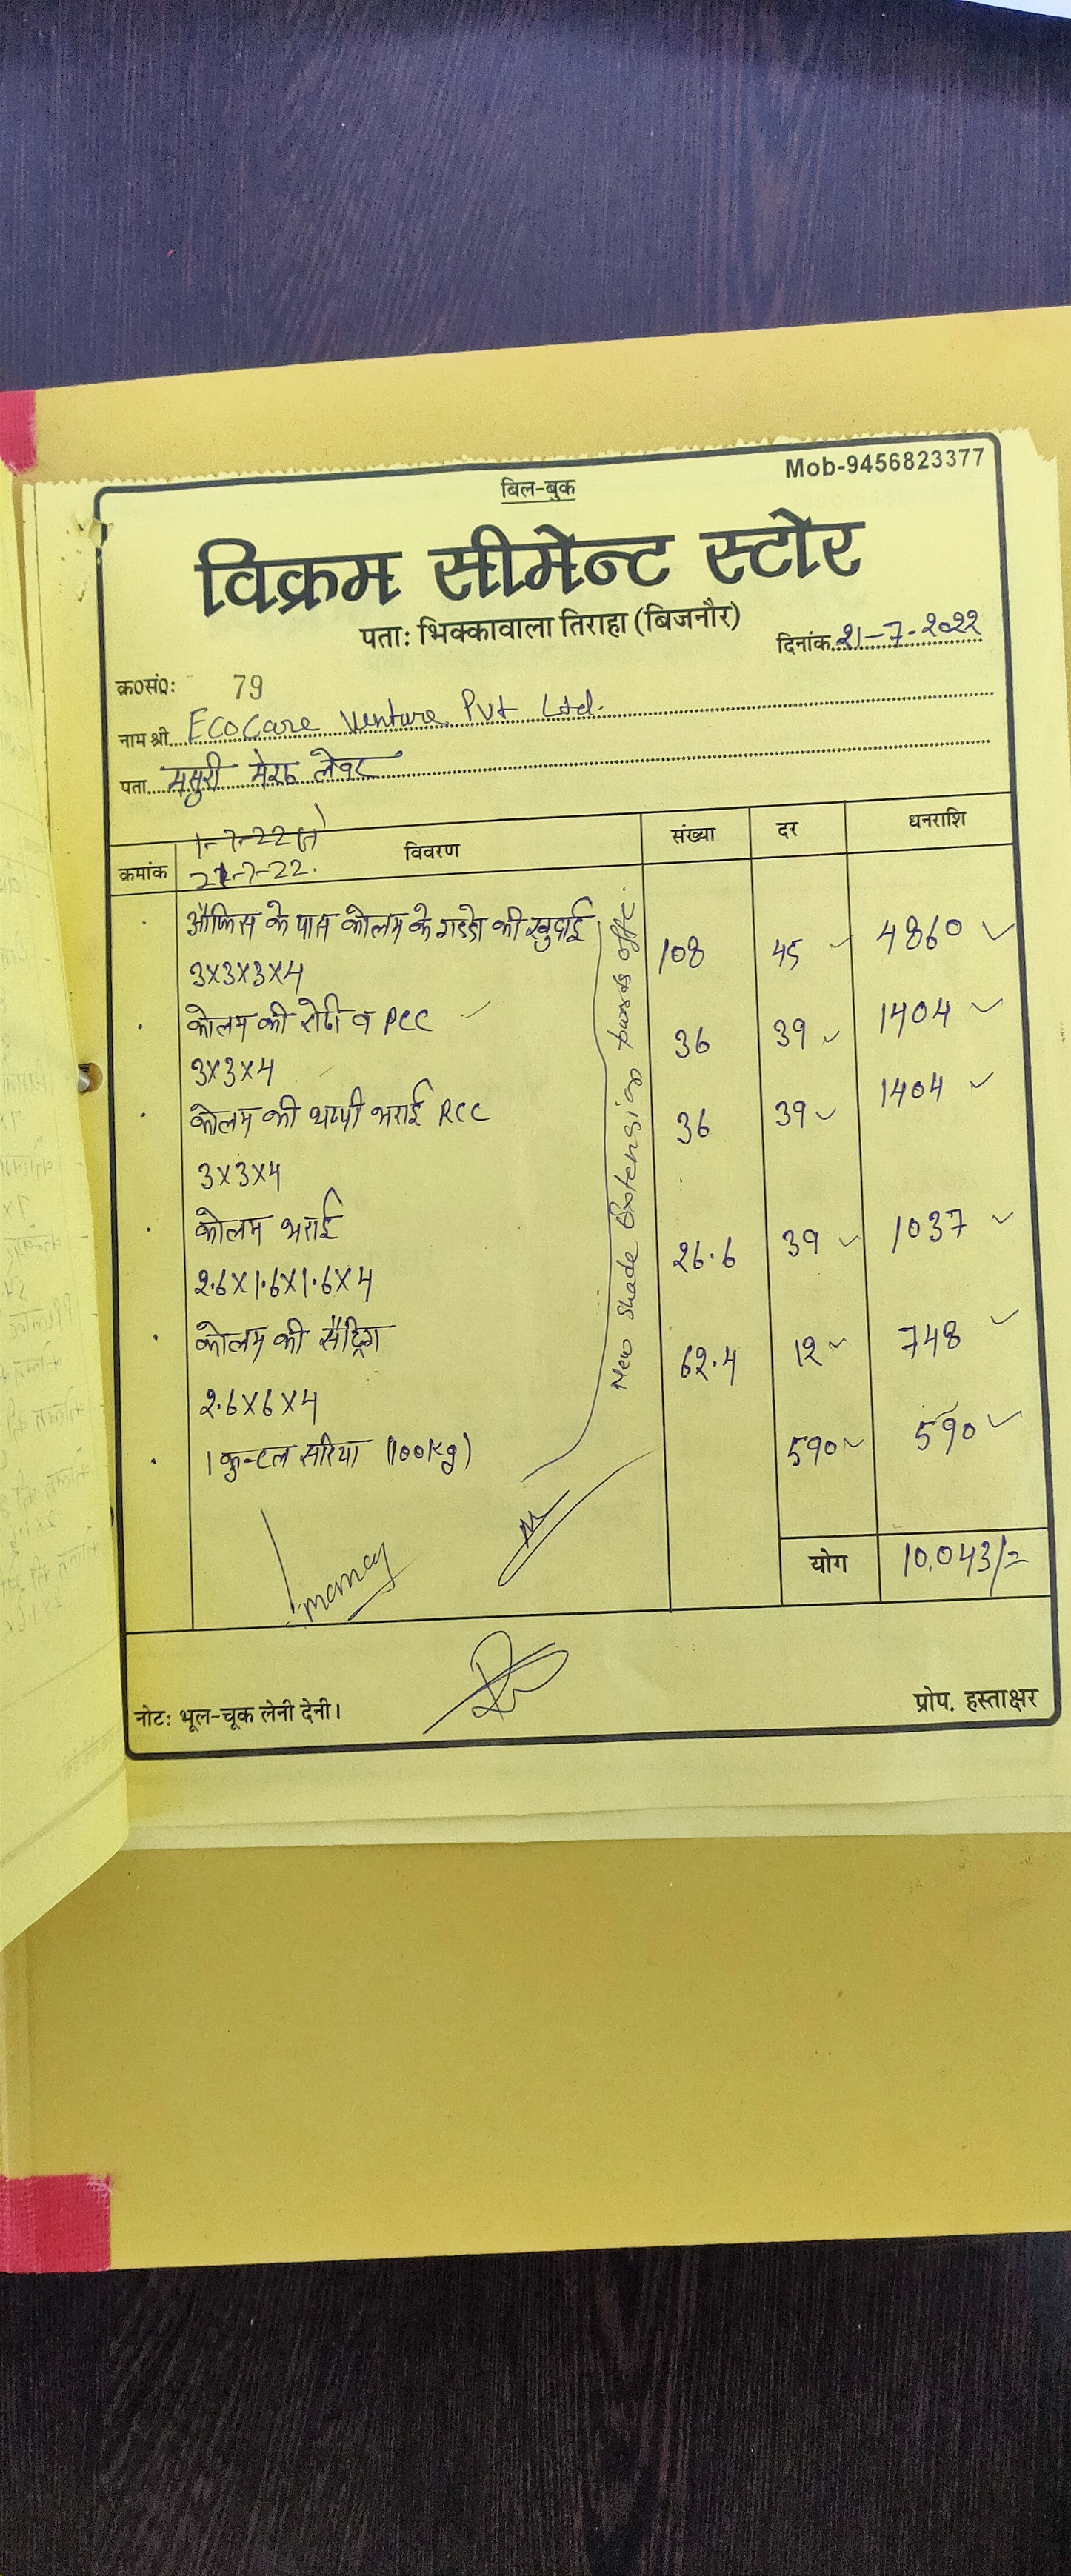 Mob-9456823377
बिल-बुक
विक्रम सीमेन्ट स्टोर
पता: भिक्कावाला तिराहा (बिजनौर)
दिनांक 21-7-2022
क्र०सं०: 79
नाम श्री Ecocare Venture Pvt Ltd.
पता मसुरी मेरठ लेबर
1-7-22 से
21-7-22.
क्रमांक विवरण संख्या दर धनराशि
औफिस के पास कोलम के गडडो की खुदाई
3x3x3x4 108 45 4860
कोलम की रोडी व PCC
3x3x4 36 39 1404
कोलम की थप्पी भराई RCC
3x3x4 36 39 1404
कोलम भराई
2.6x1.6x1.6x4 26.6 39 1037
कोलम की सैट्रिग
2.6x6x4 62.4 12 748
1 कुन्टल सरिया (100Kg) 590 590
New Shade Extension towards offc.
योग 10,043/=
नोट: भूल-चूक लेनी देनी।
प्रोप. हस्ताक्षर